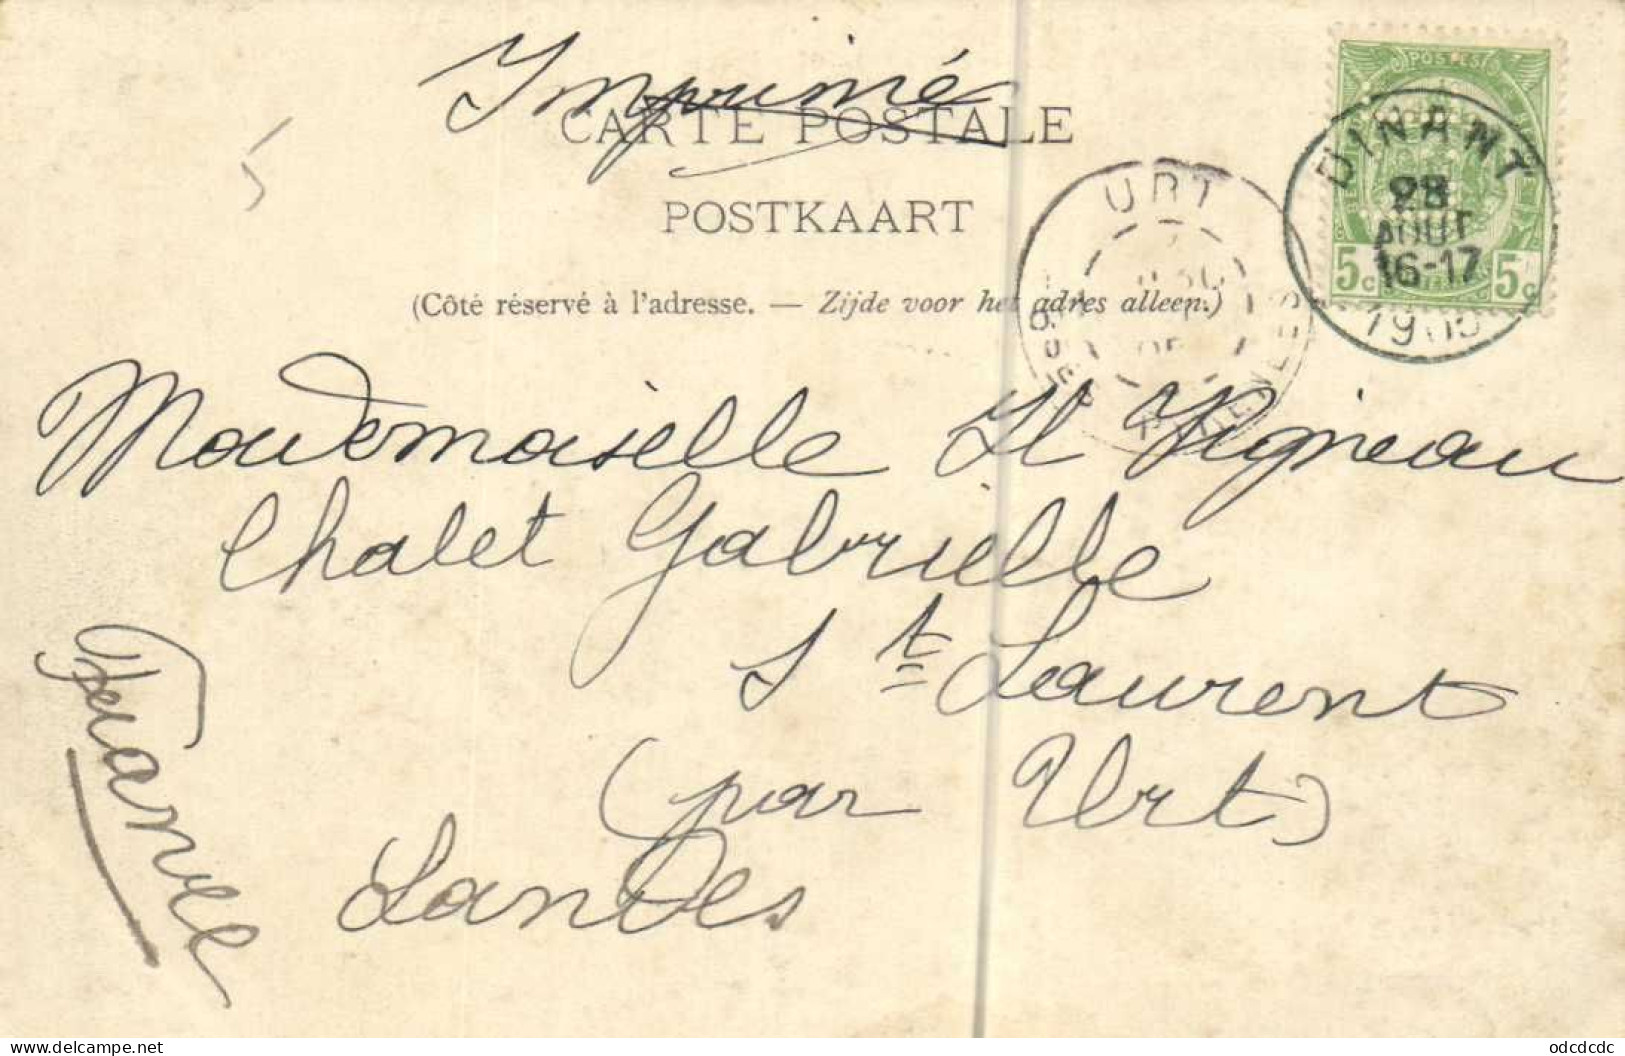 Imprimé
CARTE POSTALE
POSTKAART
(Côté réservé à l'adresse. — Zijde voor het adres alleen.)
POSTES
5c 5c
DINANT
28
AOUT
16-17
1905
URT
Mademoiselle St Vigneau
Chalet Gabrielle
St Laurent
(par Urt)
Landes
France
https://www.delcampe.net
odcdcdc